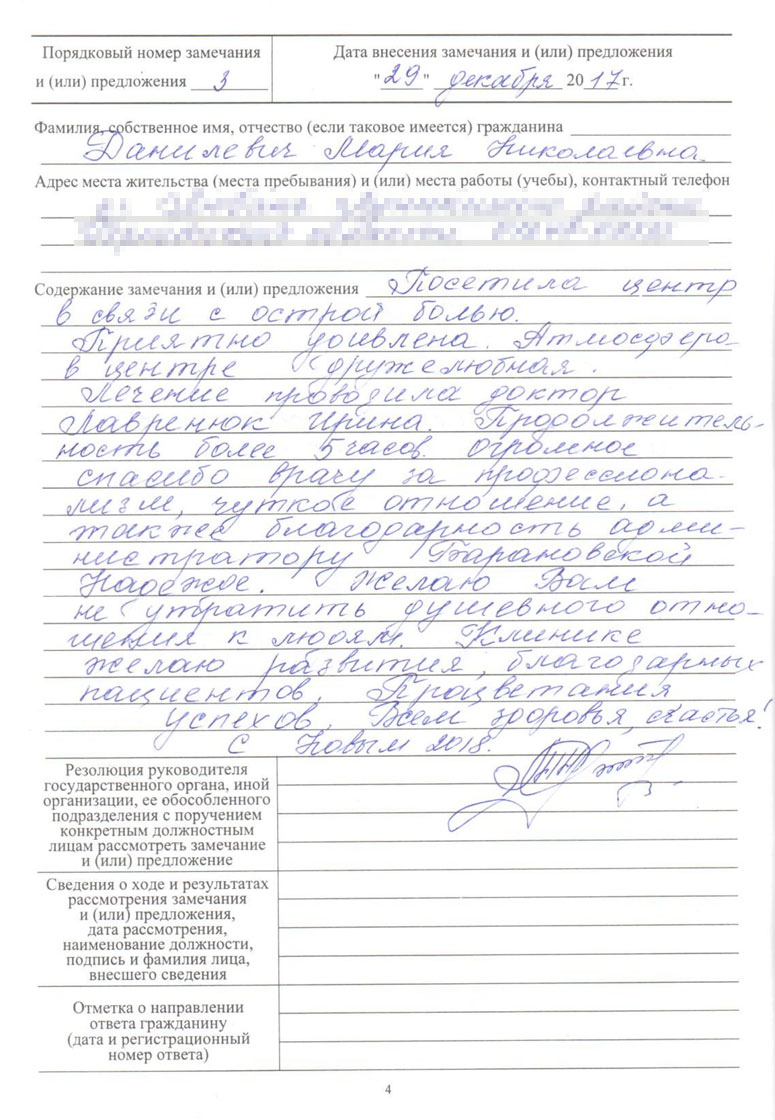 Порядковый номер замечания
и (или) предложения 3
Дата внесения замечания и (или) предложения
"29" декабря 2017г.
Фамилия, собственное имя, отчество (если таковое имеется) гражданина
Данилевич Мария Николаевна.
Адрес места жительства (места пребывания) и (или) места работы (учебы), контактный телефон
Содержание замечания и (или) предложения Посетила центр
в связи с острой болью.
Приятно удивлена. Атмосфера
в центре дружелюбная.
Лечение проводила доктор
Лавренюк Ирина. Продолжитель-
ность более 5 часов. Огромное
спасибо врачу за профессиона-
лизм, чуткое отношение, а
также благодарность адми-
нистратору Барановской
Надежде. Желаю Вам
не утратить душевного отно-
шения к людям. Клинике
желаю развития, благодарных
пациентов. Процветания
успехов. Всем здоровья, счастья!
С Новым 2018.
Резолюция руководителя
государственного органа, иной
организации, ее обособленного
подразделения с поручением
конкретным должностным
лицам рассмотреть замечание
и (или) предложение
Сведения о ходе и результатах
рассмотрения замечания
и (или) предложения,
дата рассмотрения,
наименование должности,
подпись и фамилия лица,
внесшего сведения
Отметка о направлении
ответа гражданину
(дата и регистрационный
номер ответа)
4